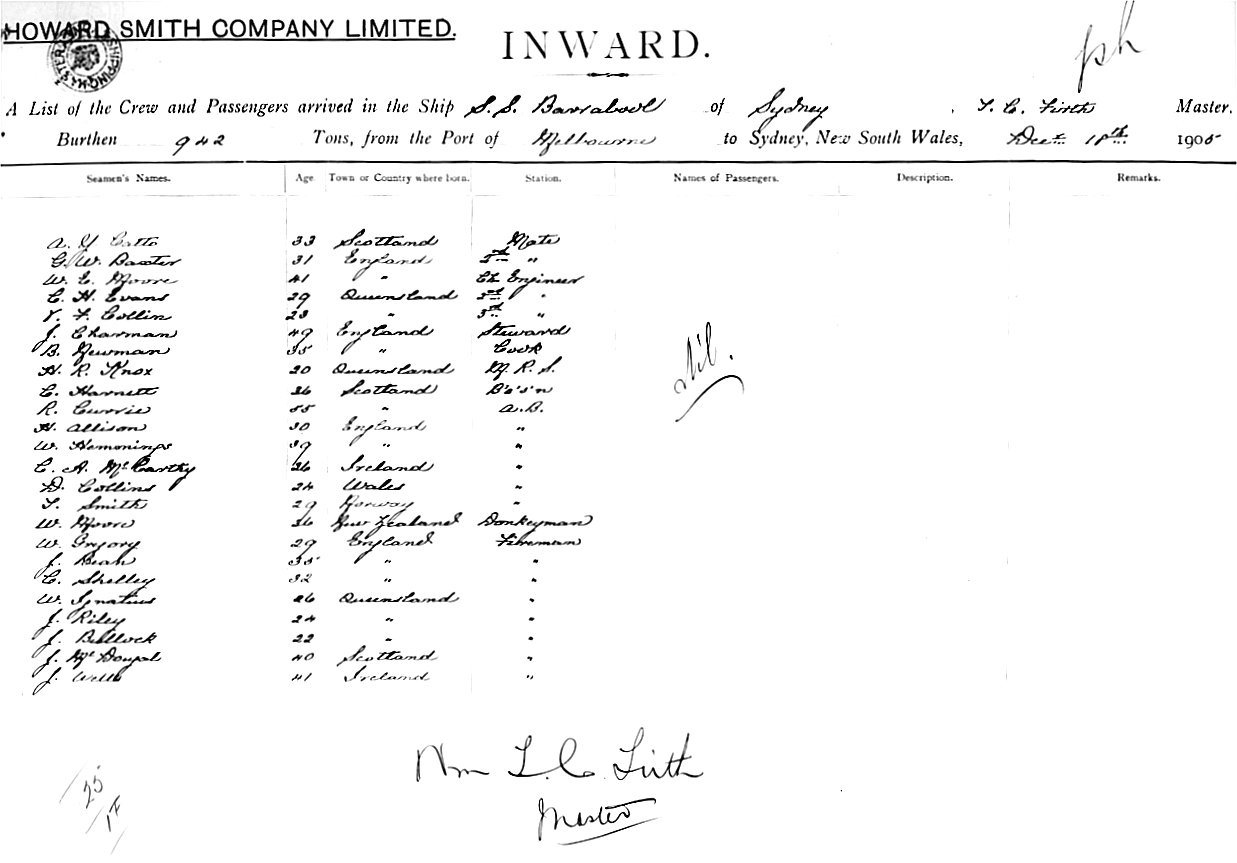 HOWARD SMITH COMPANY LIMITED.
INWARD.
A List of the Crew and Passengers arrived in the Ship S.S. Barrabool of Sydney, T. C. Firth Master.
Burthen 942 Tons, from the Port of Melbourne to Sydney, New South Wales, Dec. 18th 1905
Seamen's Names. Age Town or Country where born. Station. Names of Passengers. Description. Remarks.
A. Y Catto 33 Scotland Mate
G. W. Baxter 31 England 2nd "
W. E. Moore 41 " Ch Engineer
C. H. Evans 29 Queensland 2nd "
T. F. Collin 23 " 3rd "
J. Charman 49 England Steward
B. Newman 35 " Cook
H. R. Knox 20 Queensland M. R. S.
C. Harnett 36 Scotland Bo's'n
R. Currie 55 " A.B.
H. Allison 30 England "
W. Hemonings 39 " "
C. A. McCarthy 26 Ireland "
D. Collins 24 Wales "
T. Smith 29 Norway "
W. Moore 36 New Zealand Donkeyman
W. Gregory 29 England Fireman
J. Bean 35 " "
C. Shelley 32 " "
W. Ignatius 26 Queensland "
J. Riley 24 " "
J. Bullock 22 " "
J. McDougal 40 Scotland "
J. Wells 41 Ireland "
Nil.
Wm T. C. Firth
Master
25